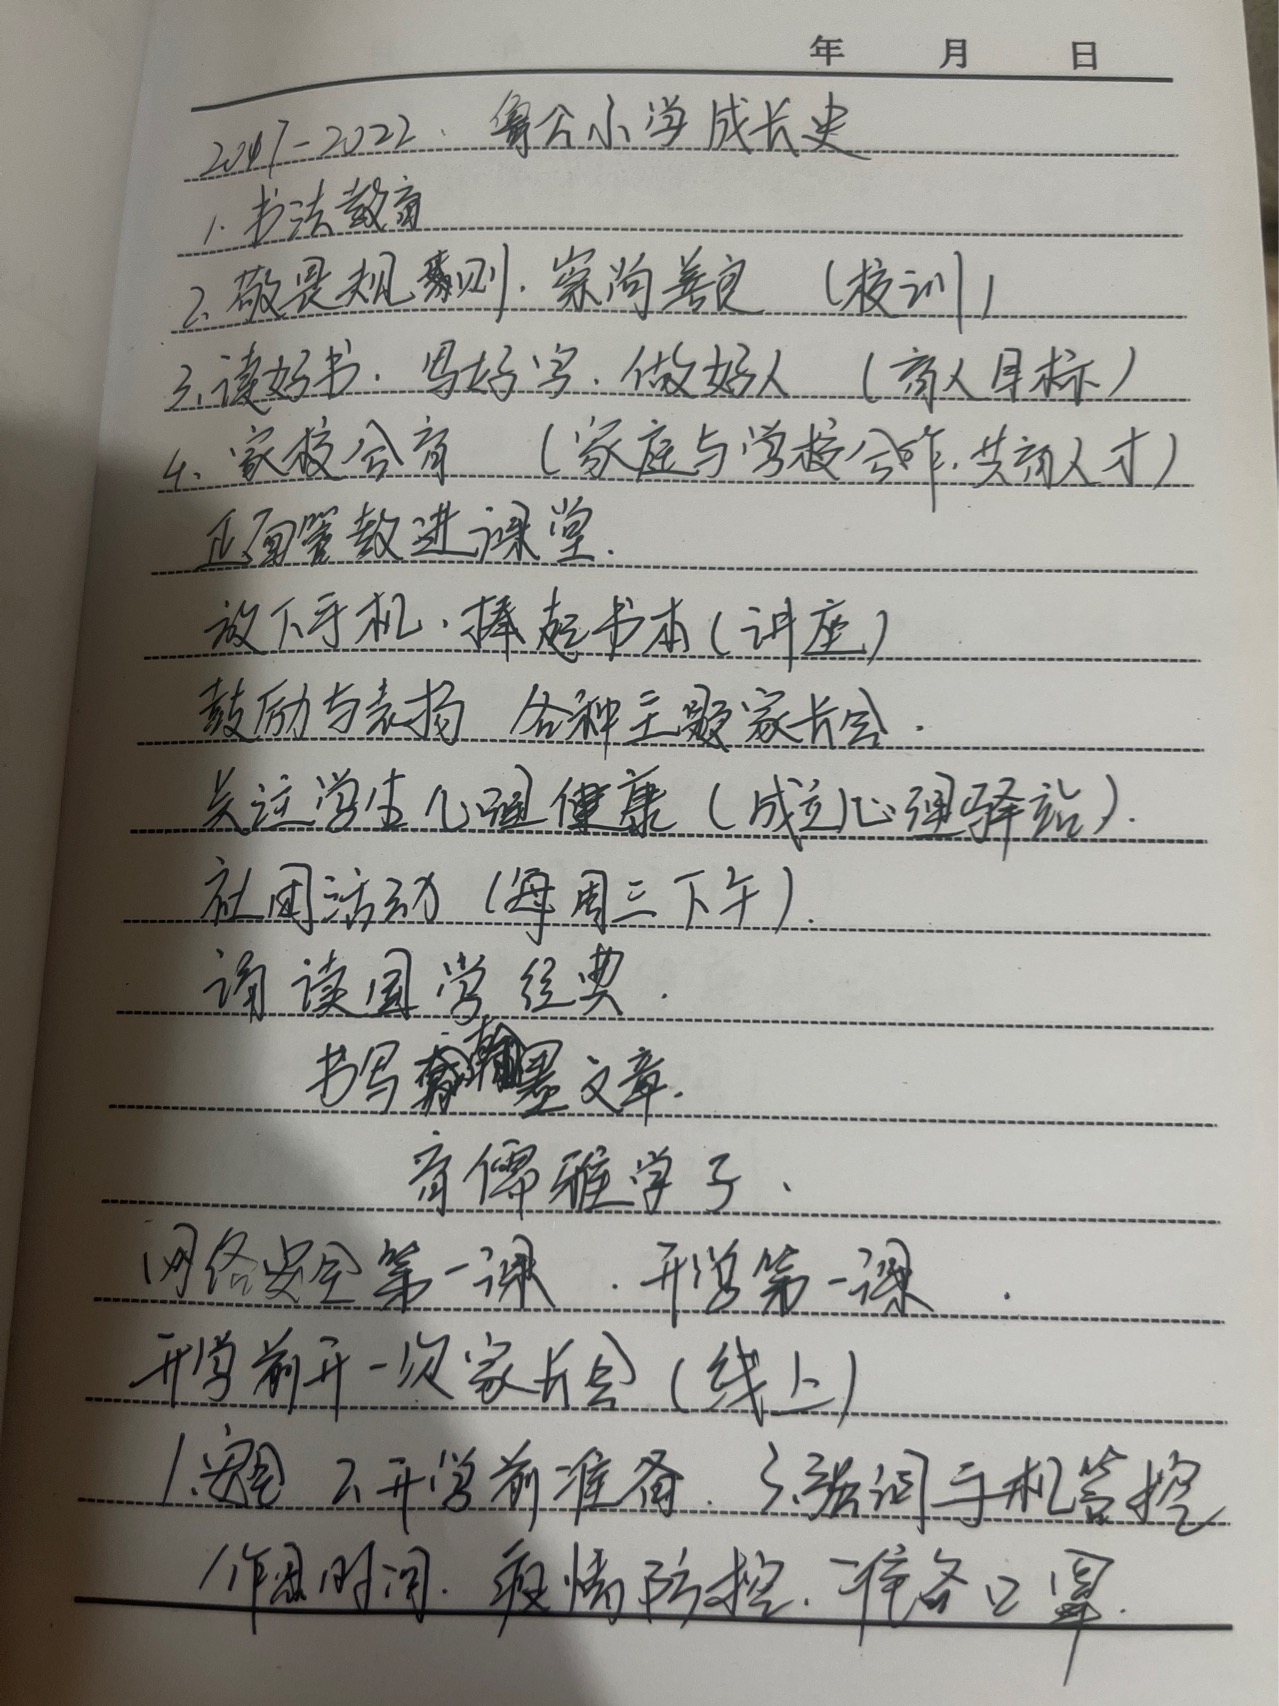 年 月 日
2017-2022. 鲁公小学成长史
1. 书法教育
2. 敬畏规则. 崇尚善良 (校训)
3. 读好书. 写好字. 做好人 (育人目标)
4. 家校合育 (家庭与学校合作. 共育人才)
正面管教进课堂.
放下手机. 捧起书本(讲座)
鼓励与表扬 各种主题家长会.
关注学生心理健康 (成立心理驿站).
社团活动 (每周三下午).
诵读国学经典.
书写翰墨文章.
育儒雅学子.
网络安全第一课 . 开学第一课 .
开学前开一次家长会(线上)
1. 安全 2. 开学前准备. 3. 强调手机管控
作息时间. 疫情防控. 准备口罩.